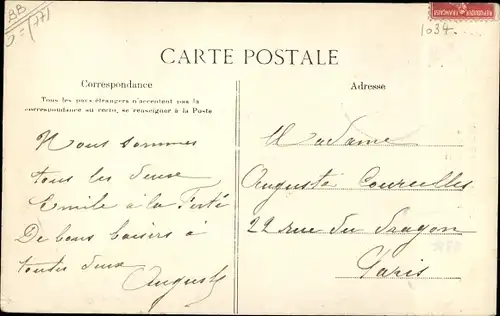 BB
RÉPUBLIQUE FRANÇAISE
1034.
CARTE POSTALE
Correspondance
Tous les pays étrangers n'acceptent pas la
correspondance au recto, se renseigner à la Poste
Nous sommes
tous les deux
Emile à la Ferté
De bons baisers à
toutes deux
Auguste
Adresse
Madame
Auguste Courcelles
22 rue du Dragon
Paris